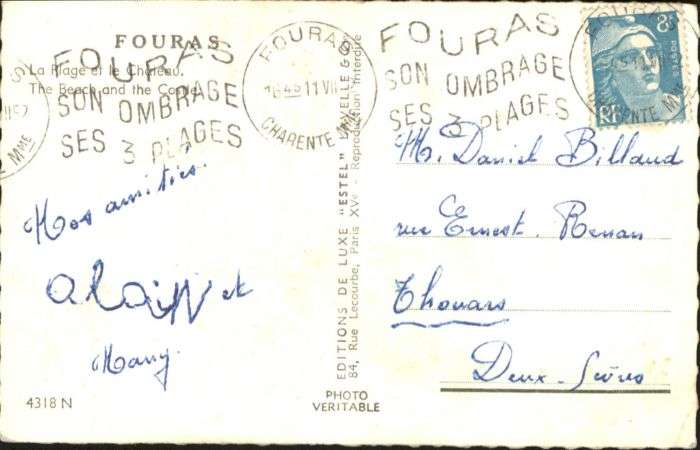 FOURAS
La Plage et le Château.
The Beach and the Castle.
FOURAS
SON OMBRAGE
SES 3 PLAGES
FOURAS
45 11 VII
CHARENTE Mme
FOURAS
SON OMBRAGE
SES 3 PLAGES
8F
POSTES
RF
Nos amitiés.
Alain et
Many.
4318 N
EDITIONS DE LUXE "ESTEL" LAVELLE &
84, Rue Lecourbe, Paris XVe - Reproduction Interdite
PHOTO
VERITABLE
Mr. Daniel Billaud
rue Ernest. Renan
Thouars
Deux-Sèvres